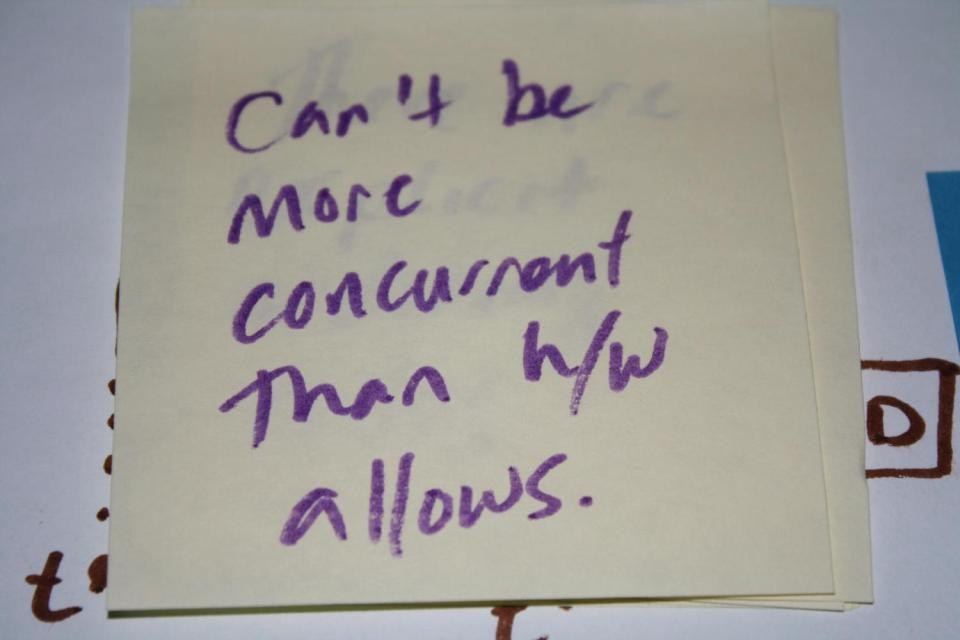 Can't be
more
concurrent
Than h/w
allows.
D
t